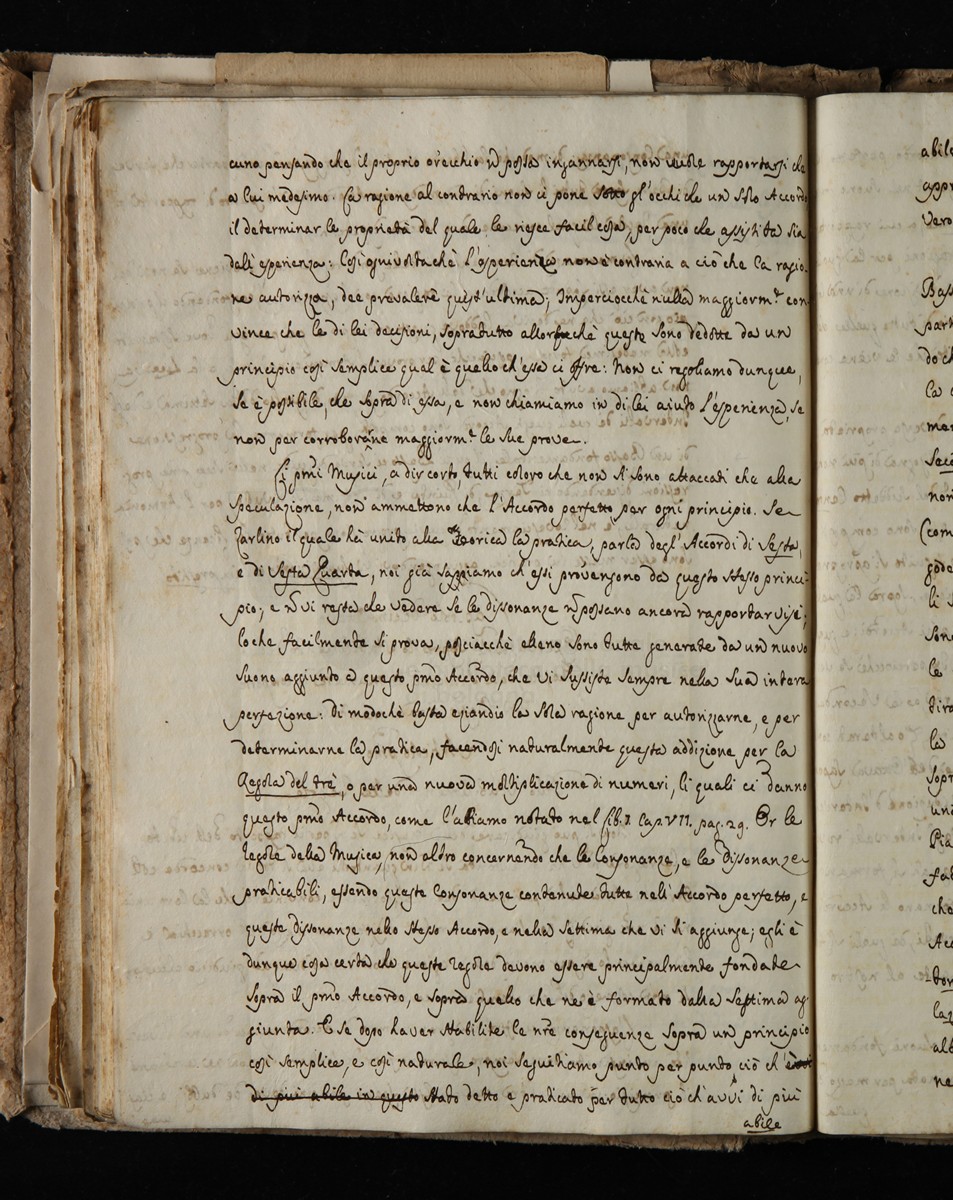 cuno pensando che il proprio orecchio ñ possa ingannarsi, non vuole rapportarsi che
a lui medesimo. La ragione al contrario non ci pone sotto gl'occhi che un solo Accordo
il determinar le proprietà del quale le riesce facil cosa, per poco che assistita sia
dall'esperienza: Così ogni volta chè l'esperienza non è contraria a ciò che la ragio:
ne autorizza, dee prevalere quest'ultima; Imperciocchè nulla maggiorm.te con
vince che le di lei decisioni, sopratutto allorchè queste sono dedotte da un
principio così semplice qual è quello ch'essa ci offre: Non ci regoliamo dunque,
se è possibile, che sopra di essa, e non chiamiamo in di lei aiuto l'esperienza, se
non per corroborarne maggiorm.te le sue prove.
Li pmi Musici, a dir corto, tutti coloro che non si sono attaccati che alla
speculazione, non ammettono che l'Accordo perfetto per ogni principio. Se
Zarlino il quale hà unito alla Teorica la pratica, parla degl'Accordi di Sesta,
e di Sesta Quarta, noi già sappiamo ch'essi provengono da questo stesso princi:
pio; e ñ vi resta che vedere se le dissonanze ñ possano ancora rapportarvisi;
loche facilmente si prova, posciacchè elleno sono tutte generate da un nuovo
suono aggiunto a questo pmo Accordo, che vi sussiste sempre nella sua intera
perfezione: di modochè basta eziandio la sola ragione per autorizzarne, e per
determinarne la pratica, facendosi naturalmente questa addizione per la
Regola del trè, o per una nuova moltiplicazione di numeri, li quali ci danno
questo pmo Accordo, come l'abiamo notato nel lib. I Cap. VII. pag. 29. Or le
regole della Musica, non altro concernendo che le Consonanze, e le Dissonanze
praticabili, essendo queste Consonanze contenute tutte nell'Accordo perfetto, e
queste dissonanze nello stesso Accordo, e nella settima che vi si aggiunge; egli è
dunque cosa certa che queste regole devono essere principalmente fondate
sopra il pmo Accordo, e sopra quello che ne è formato dalla settima ag:
giunta. E se dopo haver stabilite le nre conseguenze sopra un principio
così semplice, e così naturale, noi seguitiamo punto per punto ciò ch'è
di più abile in questo stato detto e praticato per tutto ciò ch'avvi di più
abile